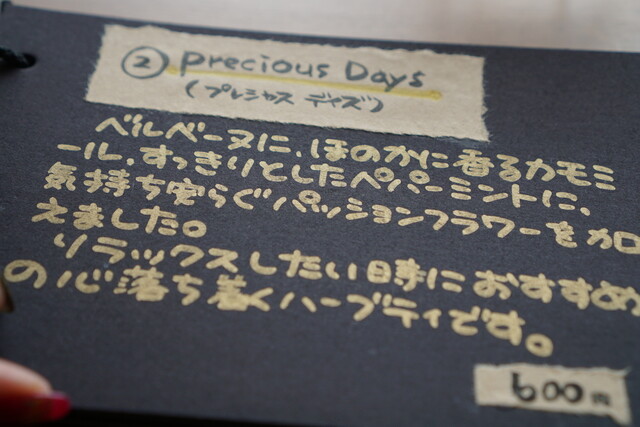 ② Precious Days
(プレシャス デイズ)
ベルベーヌに、ほのかに香るカモミ
ール、すっきりとしたペパーミントに、
気持ち安らぐパッションフラワーを加
えました。
リラックスしたい時におすすめ
の心落ち着くハーブティです。
600円